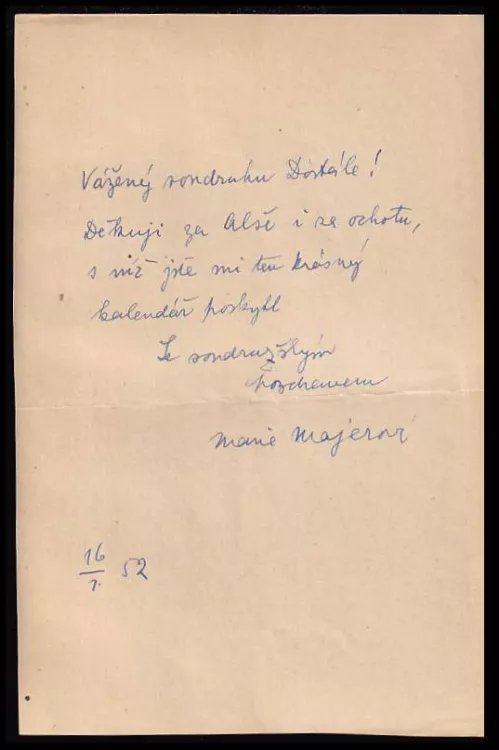 Vážený soudruhu Dostále!
Děkuji za Alše i za ochotu,
s níž jste mi ten krásný
kalendář poskytl
Se soudružským
pozdravem
Marie Majerová
16
1. 52